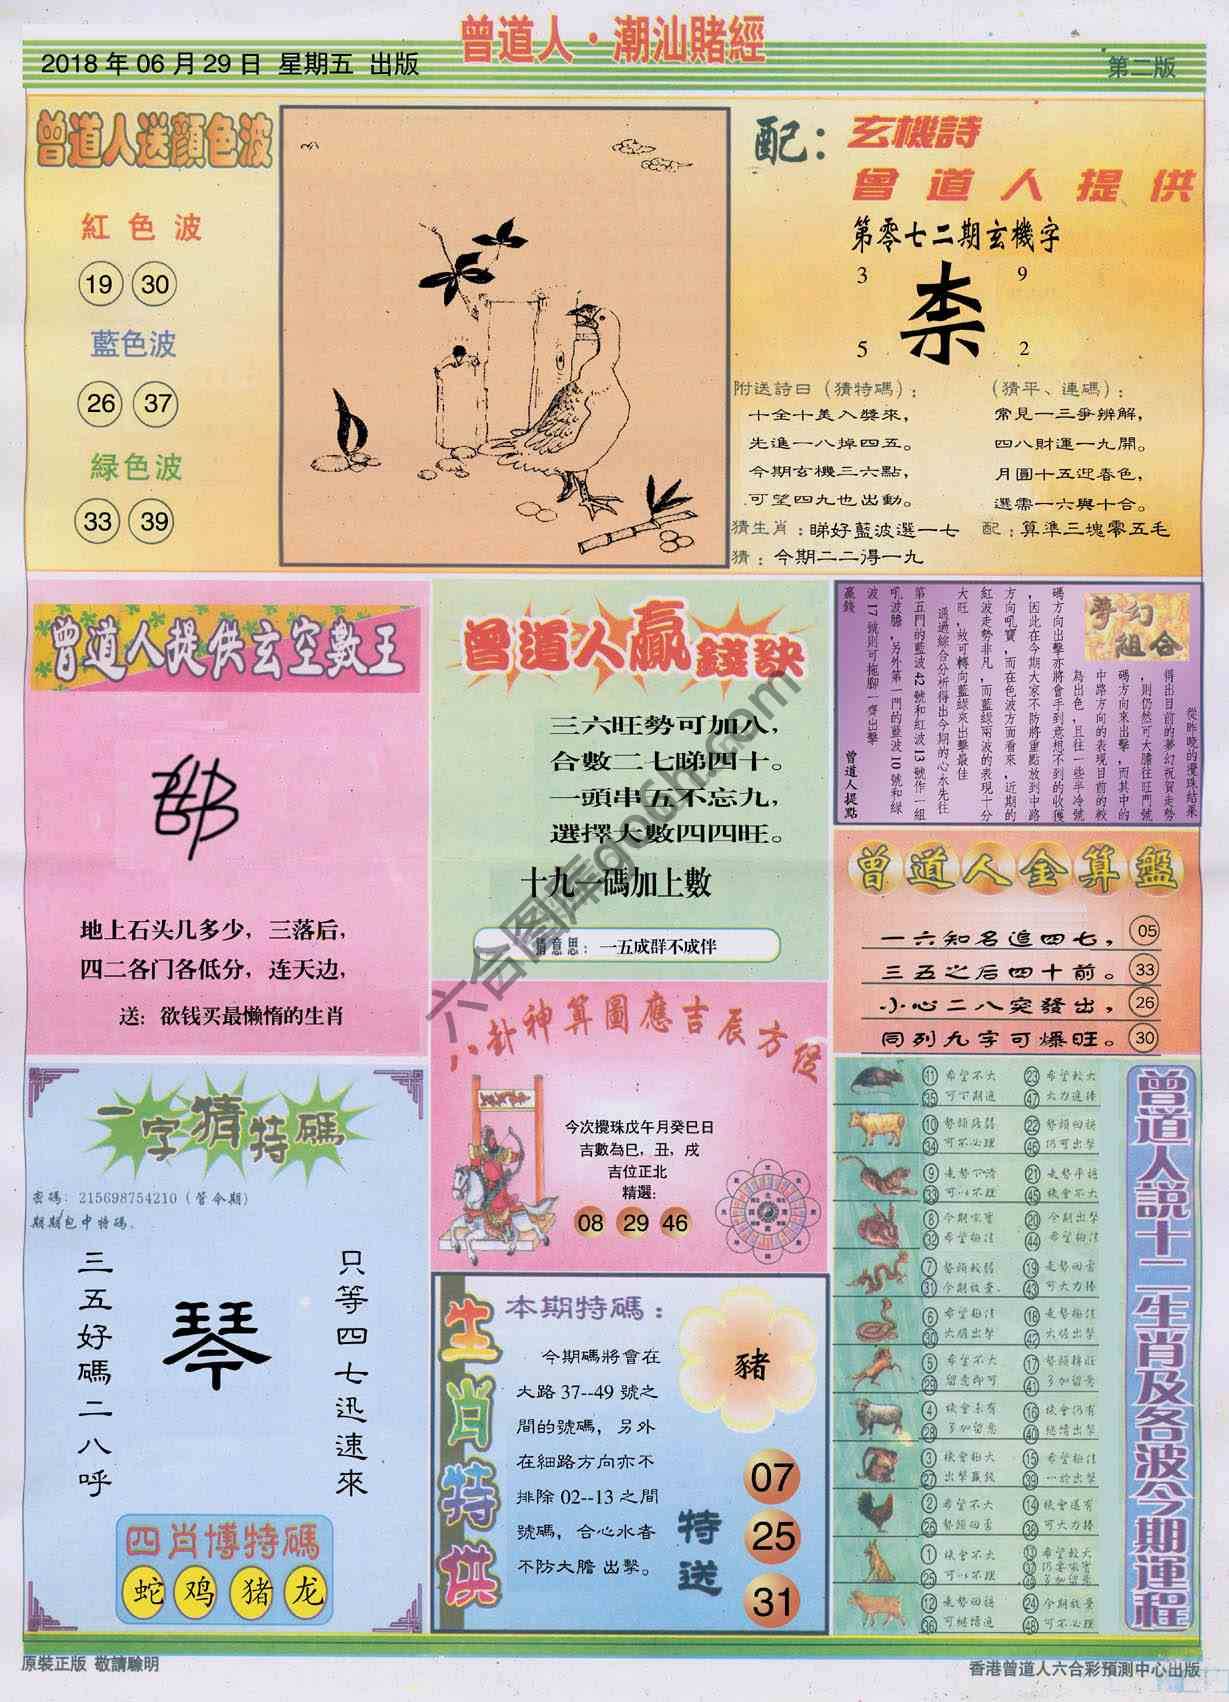 曾道人·潮汕賭經
2018 年 06 月 29 日 星期五 出版
第二版
曾道人送顔色波
紅色波
19 30
藍色波
26 37
緑色波
33 39
配：玄機詩
曾道人提供
第零七二期玄機字
3 9
柰
5 2
附送詩曰（猜特碼）：
十全十美入獎來，
先進一八掉四五。
今期玄機三六點，
可望四九也出動。
猜生肖：睇好藍波選一七
猜：今期二二得一九
（猜平、連碼）：
常見一三爭辨解，
四八財運一九開。
月圓十五迎春色，
選需一六與十合。
配：算準三塊零五毛
曾道人提供玄空數王
地上石头几多少，三落后，
四二各门各低分，连天边，
送：欲钱买最懒惰的生肖
曾道人贏錢訣
三六旺勢可加八，
合數二七睇四十。
一頭串五不忘九，
選擇大數四四旺。
十九一碼加上數
猜意思：一五成群不成伴
夢幻組合
從昨晚的攪珠結果
得出目前的夢幻祝賀走勢
，則仍然可大膽往旺門號
碼方向來出擊，而其中的
中路方向的表現目前的較
為出色，且往一些半冷號
碼方向出擊亦將會手到意想不到的收獲
，因此在今期大家不防將重點放到中路
方向吼寶，而在色波方面看來，近期的
紅波走勢非凡，而藍綠兩波的表現十分
大旺，故可轉向藍綠來出擊最佳
通過綜合分析得出今期的心水先往
第五門的藍波 42 號和紅波 13 號作一組
吼波膽，另外第一門的藍波 10 號和綠
波 17 號則可拖腳一齊出擊
贏錢
曾道人提點
曾道人金算盤
一六知名追四七， 05
三五之后四十前。 33
小心二八突發出， 26
同列九字可爆旺。 30
八卦神算圖應吉辰方位
今次攪珠戊午月癸巳日
吉數為巳，丑，戌
吉位正北
精選：
08 29 46
一字猜特碼
密碼：215698754210（管令期）
期期包中特碼.
三五好碼二八呼
琴
只等四七迅速來
四肖博特碼
蛇 鸡 猪 龙
生肖特供
本期特碼：
今期碼將會在
大路 37--49 號之
間的號碼，另外
在細路方向亦不
排除 02--13 之間
號碼，合心水者
不防大膽 出擊。
豬
特送
07
25
31
曾道人説十二生肖及各波今期運程
11 希望不大 23 希望較大
35 可下期追 47 大力追捧
10 22
34 可不必理 46 仍可出擊
9 21
33 可以不理 45 機會不大
8 20 今期出擊
32 44
7 勢頭較弱 19
31 今期放棄 43 可大力捧
6 18
30 42
5 希望不大 17
29 留意即可 41 多加留意
4 機會未有 16 機會仍有
28 多加留意 40 繼續出擊
3 15
27 39
2 希望不大 14 機會還有
26 38 可大力捧
1 機會不大 希望較大
25 可以不理 多加留意
12 24 今期放棄
36 48 可不必理
原裝正版 敬請驗明
香港曾道人六合彩預測中心出版
六合图库906h.com